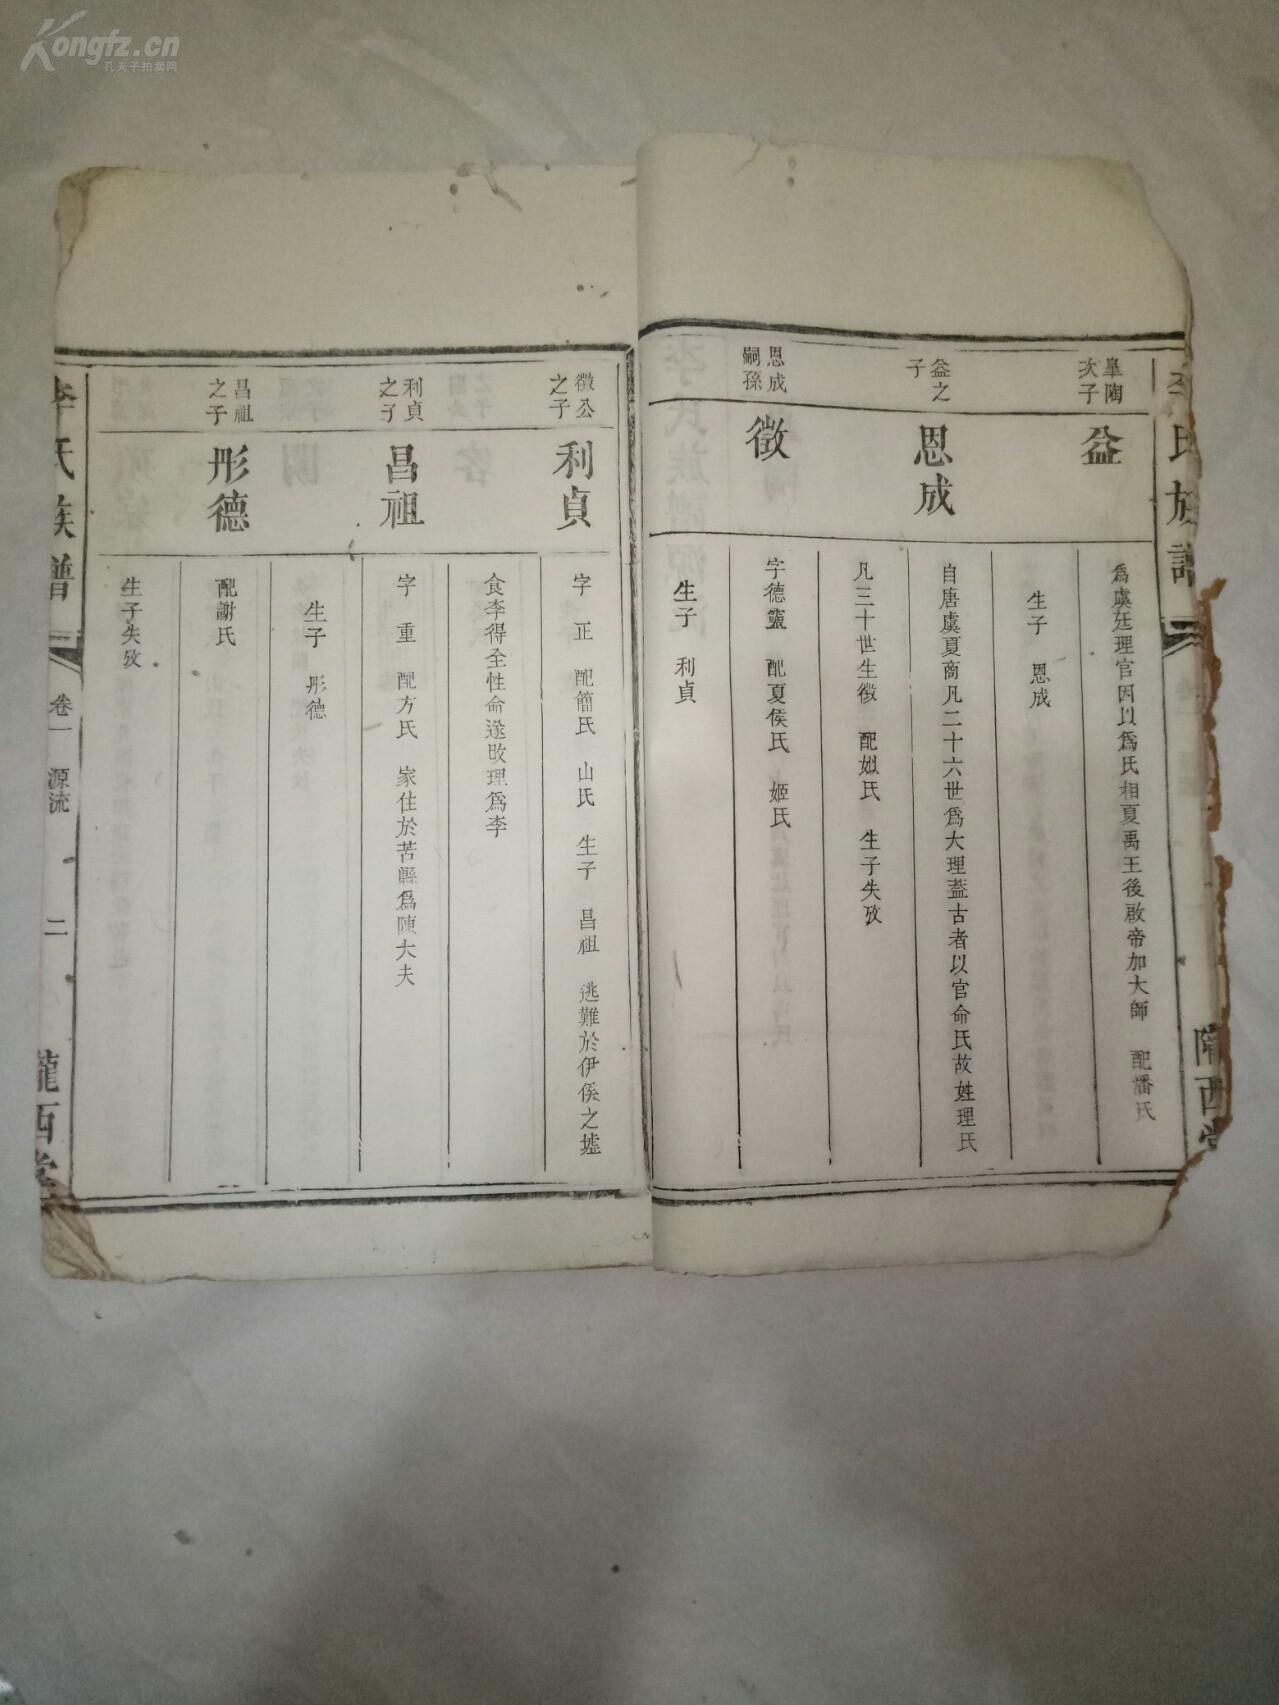 Kongfz.cn
孔夫子拍卖网
李氏族譜
隴西堂
皋陶
次子
益
爲虞廷理官因以爲氏相夏禹王後啟帝加大師 配潘氏
生子 恩成
益之
子
恩成
自唐虞夏商凡二十六世爲大理葢古者以官命氏故姓理氏
凡三十世生徵 配姒氏 生子失攷
恩成
嗣孫
徵
字德靈 配夏侯氏 姬氏
生子 利貞
徵公
之子
利貞
字 正 配簡氏 山氏 生子 昌祖 逃難於伊侯之墟
食李得全性命遂改理爲李
利貞
之子
昌祖
字 重 配方氏 家住於苦縣爲陳大夫
生子 彤德
昌祖
之子
彤德
配謝氏
生子失攷
李氏族譜
卷一 源流
二
隴西堂